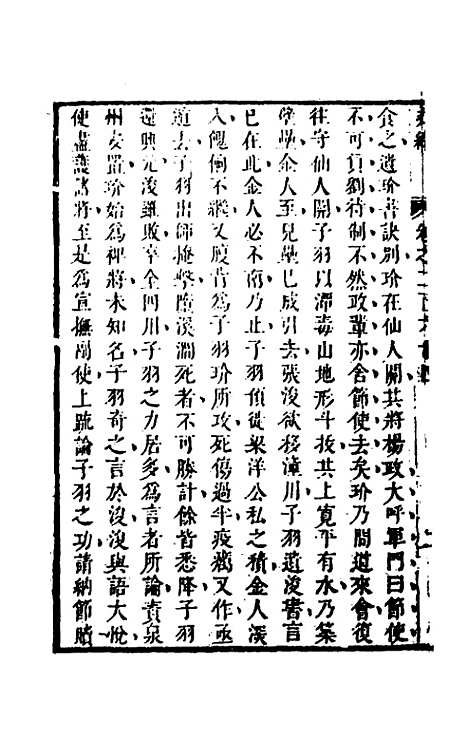 食之遺玠書訣別玠在仙人關其將楊政大呼軍門曰節使
不可負劉待制不然政輩亦舍節使去矣玠乃間道來會復
往守仙人關子羽以潭毒山地形斗拔其上寬平有水乃築
壁壘金人至見壘已成引去張浚欲移潼川子羽遺浚書言
已在此金人必不南乃止子羽預徙梁洋公私之積金人深
入餽餉不繼又腹背為子羽玠所攻死傷過半疫癘又作亟
遁去子羽出師掩擊墮溪澗死者不可勝計餘皆悉降子羽
還興元浚雖敗卒全四川子羽之力居多為言者所論責
州安置玠始為裨將未知名子羽奇之言於浚浚與語大悅
使盡護諸將至是為宣撫副使上疏論子羽之功請納節贖